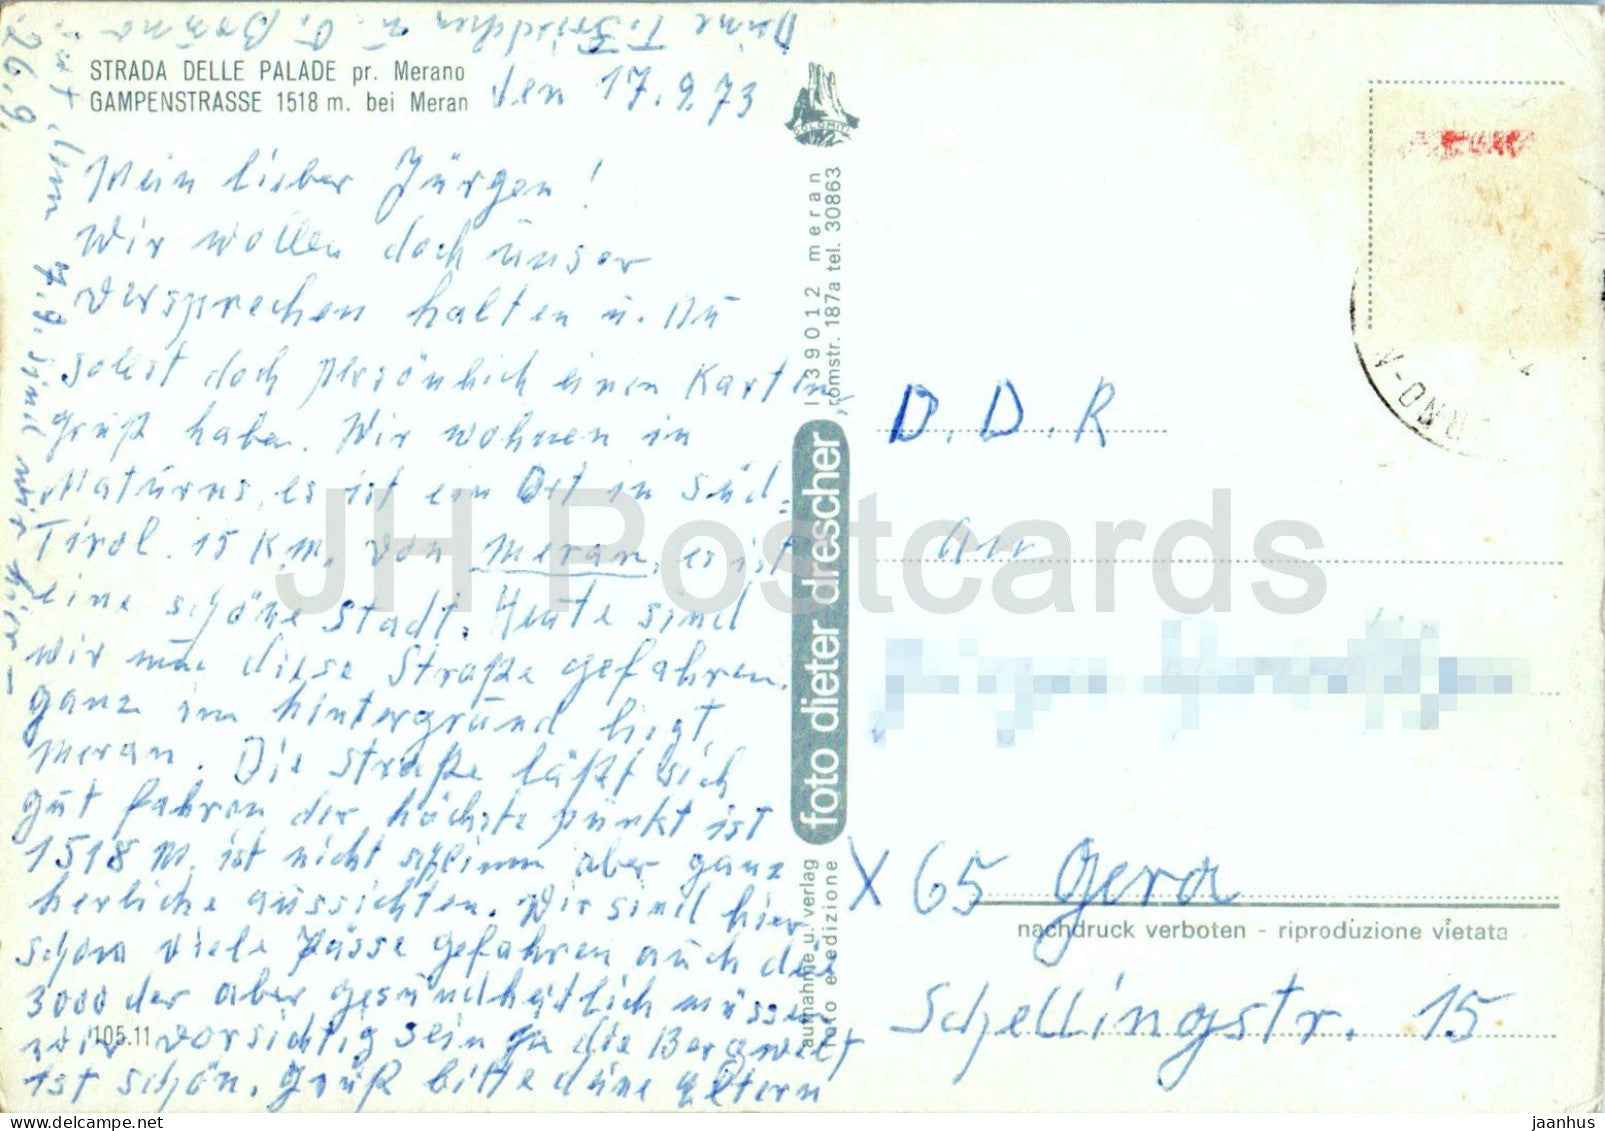 STRADA DELLE PALADE pr. Merano
GAMPENSTRASSE 1518 m. bei Meran
den 17.9.73
Mein lieber Jürgen!
Wir wollen doch unser
versprechen halten u. Du
sollst doch persönlich einen Karten
gruß haben. Wir wohnen in
Naturns, es ist ein Ort in Süd-
Tirol. 15 K.M. von Meran, es ist
eine schöne Stadt. Heute sind
wir nun diese Straße gefahren.
ganz im hintergrund liegt
Meran. Die Straße läßt sich
gut fahren der höchste punkt ist
1518 M. ist nicht schlimm aber ganz
herliche aussichten. Wir sind hier
schon viele Pässe gefahren auch die
3000 der aber gesundheitlich müssen
wir vorsichtig sein ja die Bergwelt
ist schön. Gruß bitte deine Eltern
vom 7.9. sind wir hier -
26.9.
Deine T. u. O.
105.11
DOLOMITI
I 39012 meran
romstr. 187a tel. 30863
foto dieter drescher
aufnahme u. verlag
foto e edizione
D.D.R
An
X 65 Gera
nachdruck verboten - riproduzione vietata
Schellingstr. 15
JH Postcards
jaanhus / ee